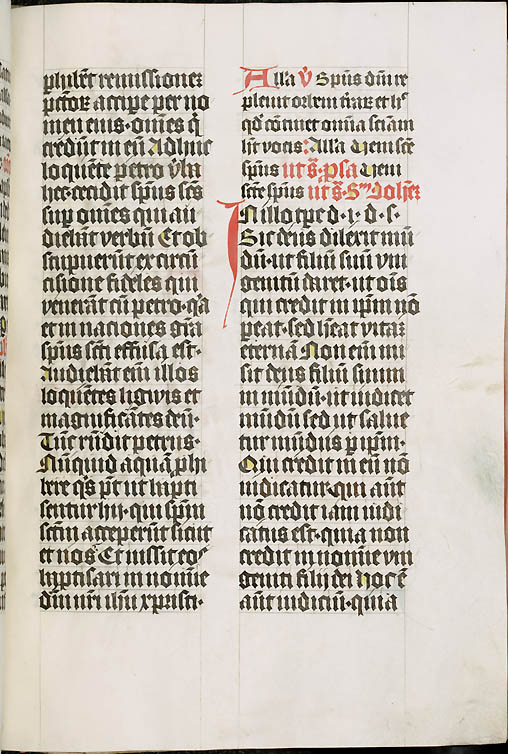 phibēt remissionez
pctōꝝ accipe per no
men eius · om̄es q̄
credūt in eū Adhuc
loquēte petro v̄ba
hec · cecidit sp̄us sc̄s
sup om̄es qui au
diebāt verbū Et ob
stupuerūt ex circū
cisione fideles qui
venerāt cū petro · q̄a
et in naciones gr̄a
sp̄us sc̄ti effusa est ·
Audiebāt eī illos
loquētes ligwis et
magnificātes deū ·
Tūc rn̄dit petrus ·
Nūquid aquā phi
bere q̄s pt̄ ut bapti
sentur hij · qui sp̄m
sc̄tm acceperūt sicut
et nos Et iussit eos
baptisari in nomīe
dn̄i nr̄i ih̄u xp̄risti ·
Alla v̄ Spūs dn̄i re
pleuit orbem t̄raꝝ et hͦ
qd̄ cōtinet omīa sciām
hꝫ vocis : Alla Veni sc̄te
spūs ut s̄ · psa Veni
sc̄te spūs ut s̄ · Sm̄ Joh̄ez
In illo tpꝫ d · i · d · s ·
Sic deus dilexit mū
dū · ut filiū suū vni
genitū daret · ut oīs
qui credit in ip̄m nō
peat · sed h̄eat vitaꝫ
eternā Non eīm mi
sit deus filiū suum
in mūdū · ut iudicet
mūdū sed ut salue
tur mūdus p ip̄m ·
Qui credit in eū nō
iudicatur · qui aūt
nō credit iam iudi
catus est · quia non
credit in nomīe vni
geniti filij dei Hoc ē
aūt iudiciū · quia